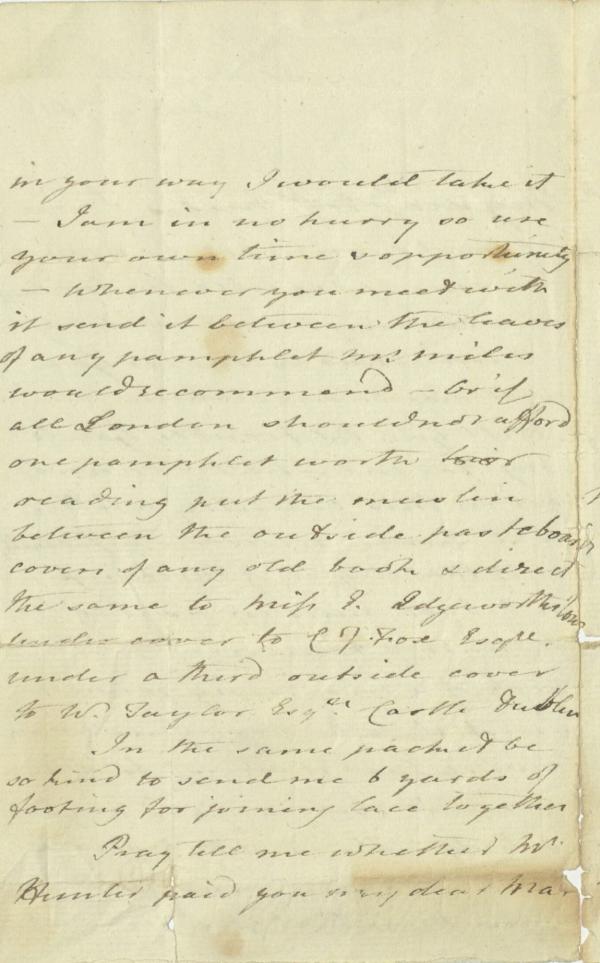 in your way I would take it
— I am in no hurry so use
your own time & opportunity
— Whenever you meet with
it send it between the leaves
of any pamphlet Mr. Miles
would recommend — Or if
all London should not afford
one pamphlet worth
reading put the muslin
between the outside pasteboard
covers of any old book & direct
the same to Miss F. Edgeworth
under cover to C J Fox Esqre.
under a third outside cover
to W. Taylor Esqre. Castle Dublin
In the same packet be
so kind to send me 6 yards of
footing for joining lace together
Pray tell me whether Mr.
Hunter paid you my dear Mar